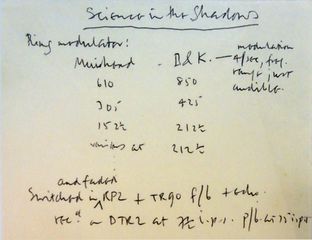 Science in the Shadows
Ring modulator:
Muirhead - B & K. — modulation
4/sec, freq.
range just
audible.
610 850
305 425
152½ 212½
various at 212½
and faded
Switched in RP2 + TR90 f/b + echo.
rec<sup>d</sup> on DTR2 at 7½ i.p.s. p/b at 15 ips